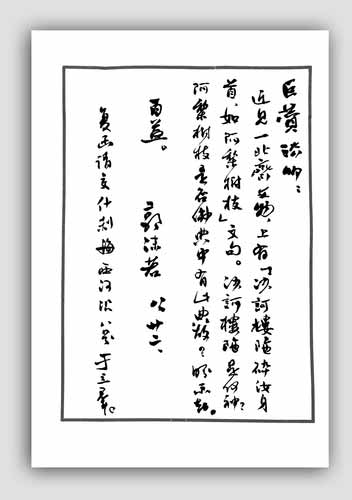 巨贊法师：
近见一北齊文物，上有「沙訶樓陁碎汝身
首，如阿黎樹枝」文句。沙訶樓陁是何神？
阿黎樹枝是否佛典中有此典故？盼示知。
郭沫若 八、廿二、
复函请交什刹海西河沿八号 于立群。